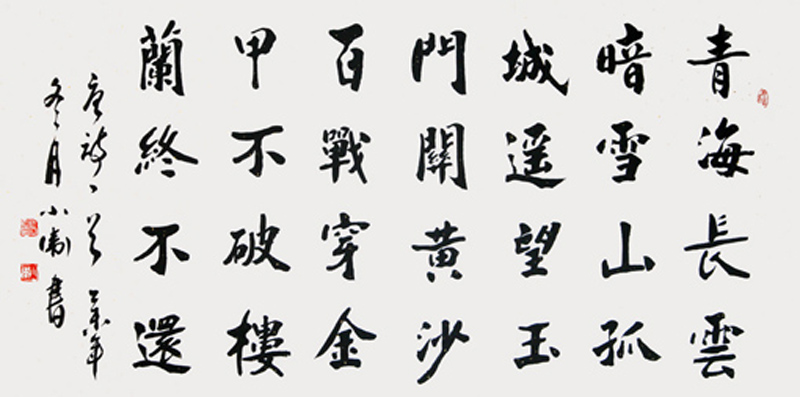 青海長雲
暗雪山孤
城遥望玉
門關黄沙
百戰穿金
甲不破樓
蘭終不還
唐詩一首 年
冬月小衛書